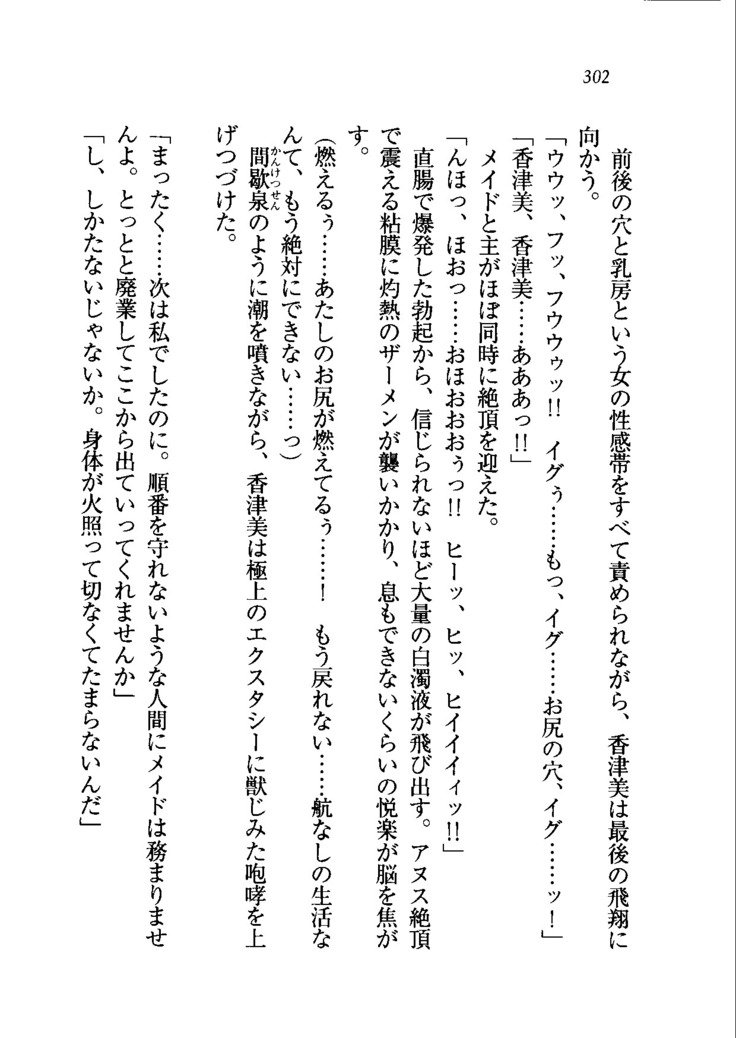 302
前後の穴と乳房という女の性感帯をすべて責められながら、香津美は最後の飛翔に
向かう。
「ウウッ、フッ、フウウゥッ!! イグぅ……もっ、イグ……お尻の穴、イグ……ッ！」
「香津美、香津美……あああっ!!」
メイドと主がほぼ同時に絶頂を迎えた。
「んほっ、ほおっ……おほおおおぅっ!! ヒーッ、ヒッ、ヒイイイィッ!!」
直腸で爆発した勃起から、信じられないほど大量の白濁液が飛び出す。アヌス絶頂
で震える粘膜に灼熱のザーメンが襲いかかり、息もできないくらいの悦楽が脳を焦が
す。
（燃えるぅ……あたしのお尻が燃えてるぅ……！ もう戻れない……航なしの生活な
んて、もう絶対にできない……っ）
間歇泉のように潮を噴きながら、香津美は極上のエクスタシーに獣じみた咆哮を上
かんけつせん
げつづけた。
「まったく……次は私でしたのに。順番を守れないような人間にメイドは務まりませ
んよ。とっとと廃業してここから出ていってくれませんか」
「し、しかたないじゃないか。身体が火照って切なくてたまらないんだ」